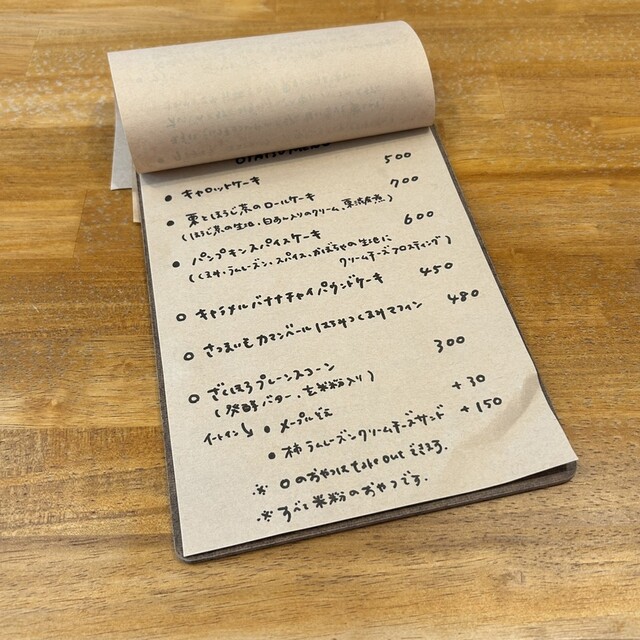 OYATSU MENU
● キャロットケーキ 500
● 栗とほうじ茶のロールケーキ 700
(ほうじ茶の生地、白あん入りのクリーム、栗渋皮煮)
● パンプキンスパイスケーキ 600
(くるみ、ラムレーズン、スパイス、かぼちゃの生地に
クリームチーズフロスティング)
○ キャラメルバナナチャイパウンドケーキ 450
○ さつまいもカマンベールはちみつくるみマフィン 480
○ ざくほろプレーンスコーン 300
(発酵バター、玄米粉入り)
イートイン ● メープルがえ +30
● 柿ラムレーズンクリームチーズサンド +150
※ ○のおやつはtake outできます。
※ すべて米粉のおやつです。